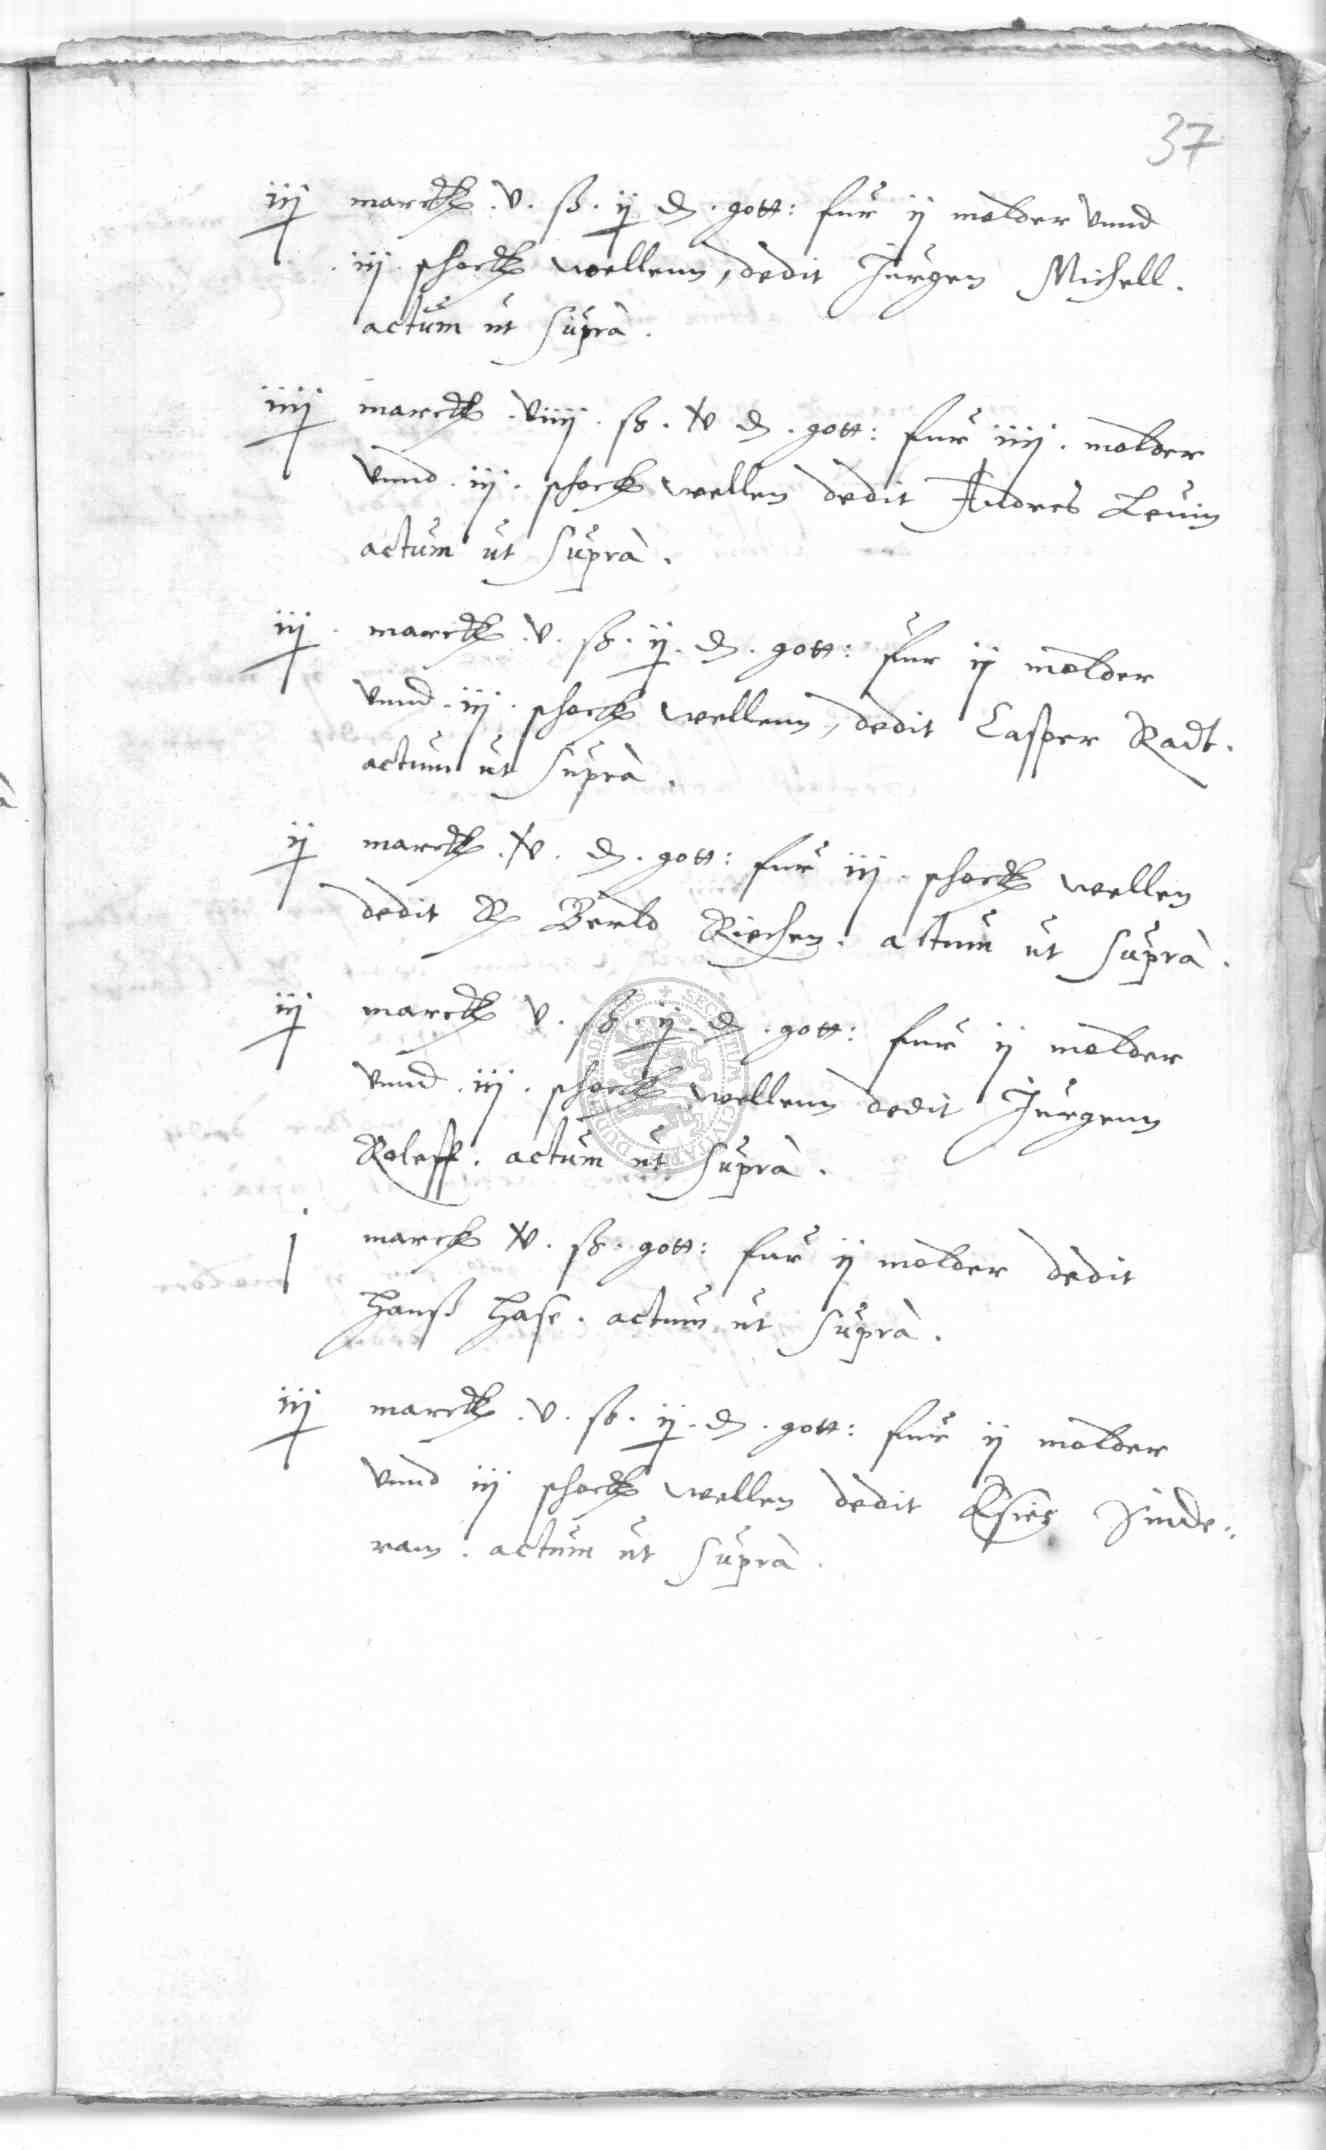 37
iij marck . v . ß . ij d . gott : fur ij molder vnnd
. iij . schock wellenn, dedit Jurgen Michell .
actum ut supra .
iiij marck . viiij . ß . xv d . gott : fur iiij . molder
vnnd . iij . schock wellen dedit Andres Levin
actum ut supra .
iij . marck . v . ß . ij . d . gott : fur ij molder
vnnd . iij . schock wellenn, dedit Casper Radt .
actum ut supra .
ij marck . xv . d . gott : fur iij . schock wellen
dedit Berld Riechen . actum ut supra .
iij marck v . ß . ij . d . gott : fur ij molder
vnnd . iij . schock wellenn dedit Jurgenn
Roleff . actum ut supra .
j marck xv . ß . gott : fur ij molder dedit
Hanß Hase . actum ut supra .
iij marck . v . ß . ij . d . gott : fur ij molder
vnnd iij schock wellen dedit Hinde-
ram . actum ut supra .